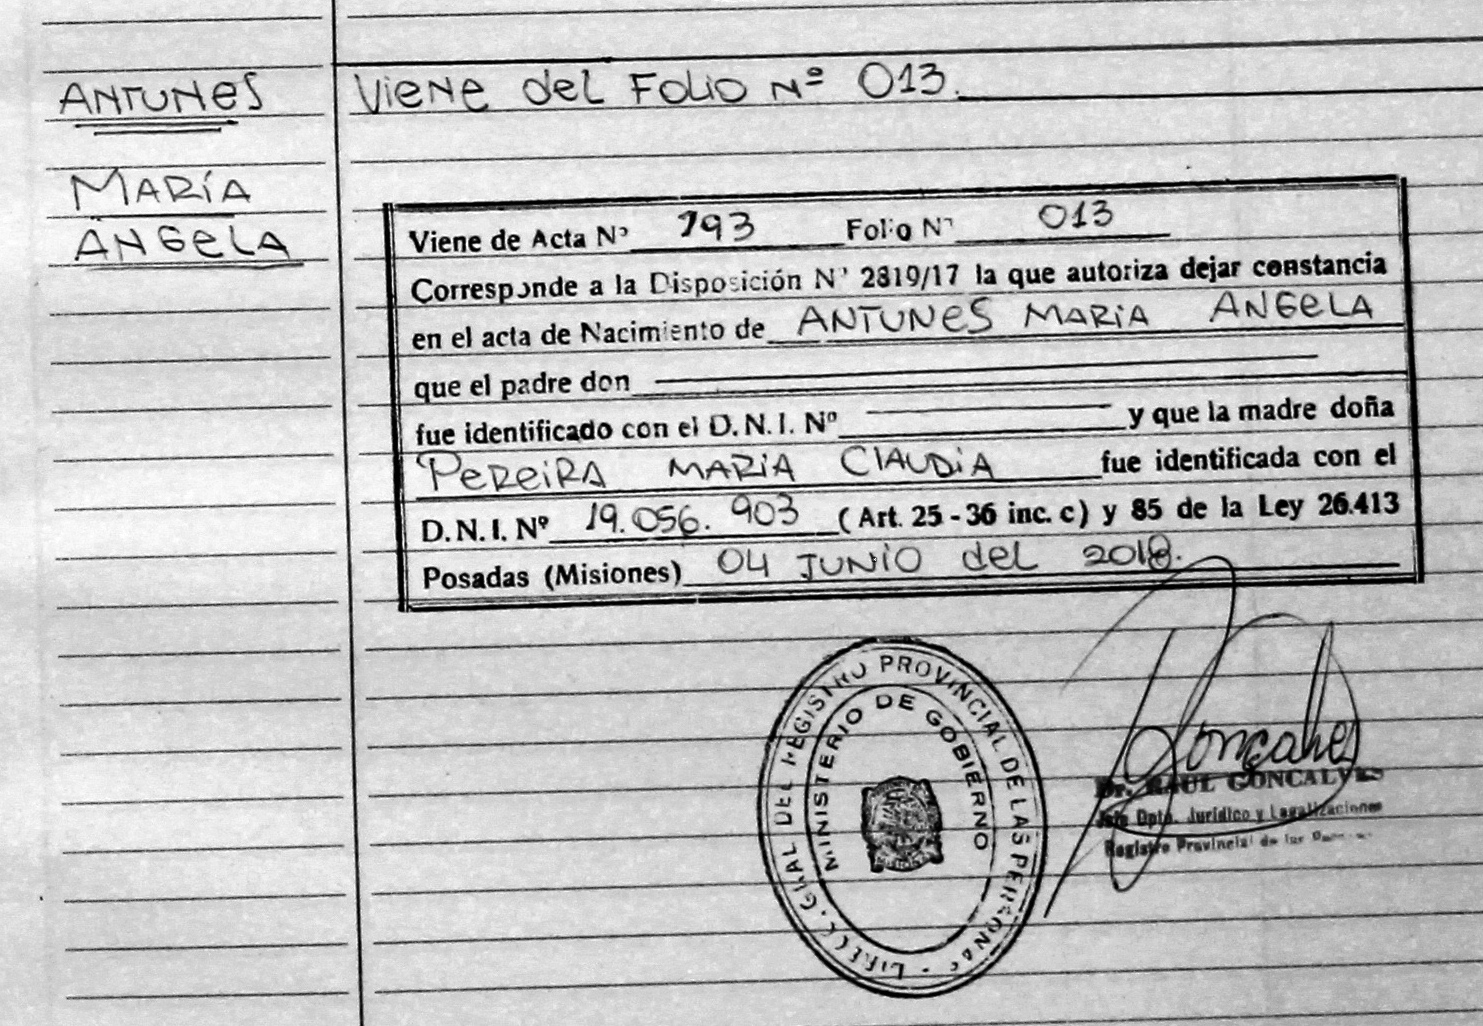 ANTUNES
MARÍA
ÁNGELA
Viene del Folio Nº 013.
Viene de Acta Nº 193 Folio Nº 013
Corresponde a la Disposición Nº 2819/17 la que autoriza dejar constancia
en el acta de Nacimiento de ANTUNES MARIA ANGELA
que el padre don
fue identificado con el D.N.I. Nº y que la madre doña
PEREIRA MARIA CLAUDIA fue identificada con el
D.N.I. Nº 19.056.903 (Art. 25 - 36 inc. c) y 85 de la Ley 26.413
Posadas (Misiones) 04 JUNIO del 2018.
DIRECC. GRAL DEL REGISTRO PROVINCIAL DE LAS PERSONAS -
MINISTERIO DE GOBIERNO
Goncalves
Dr. RAUL GONCALVES
Jefe Dpto. Jurídico y Legalizaciones
Registro Provincial de las